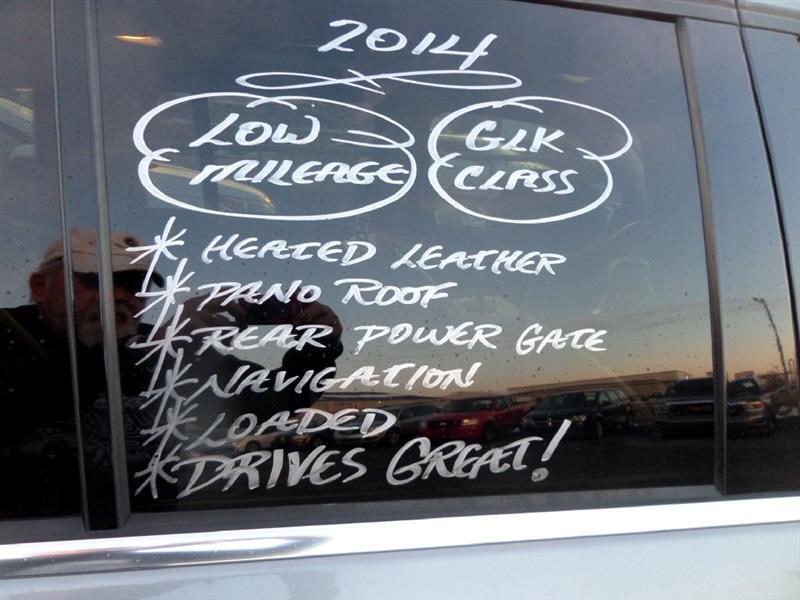 2014
LOW
MILEAGE
GLK
CLASS
* HEATED LEATHER
* PANO ROOF
* REAR POWER GATE
* NAVIGATION
* LOADED
* DRIVES GREAT!